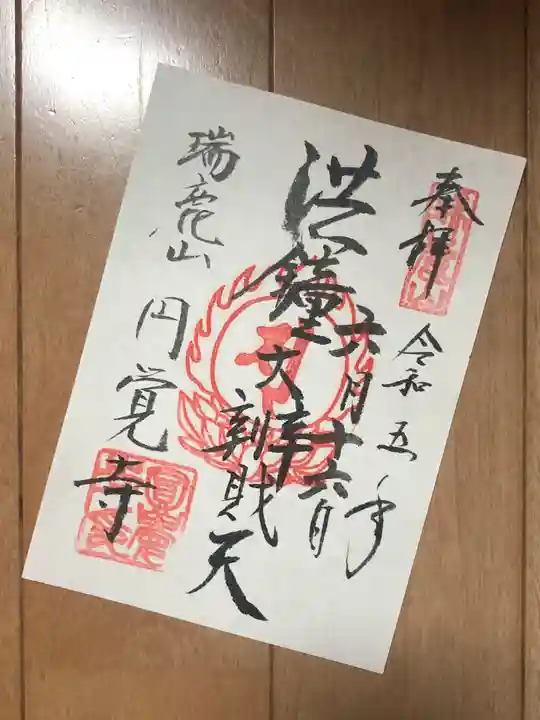 奉拝
令和五年
六月十六日
洪鐘大辨財天
瑞鹿山
円覚寺